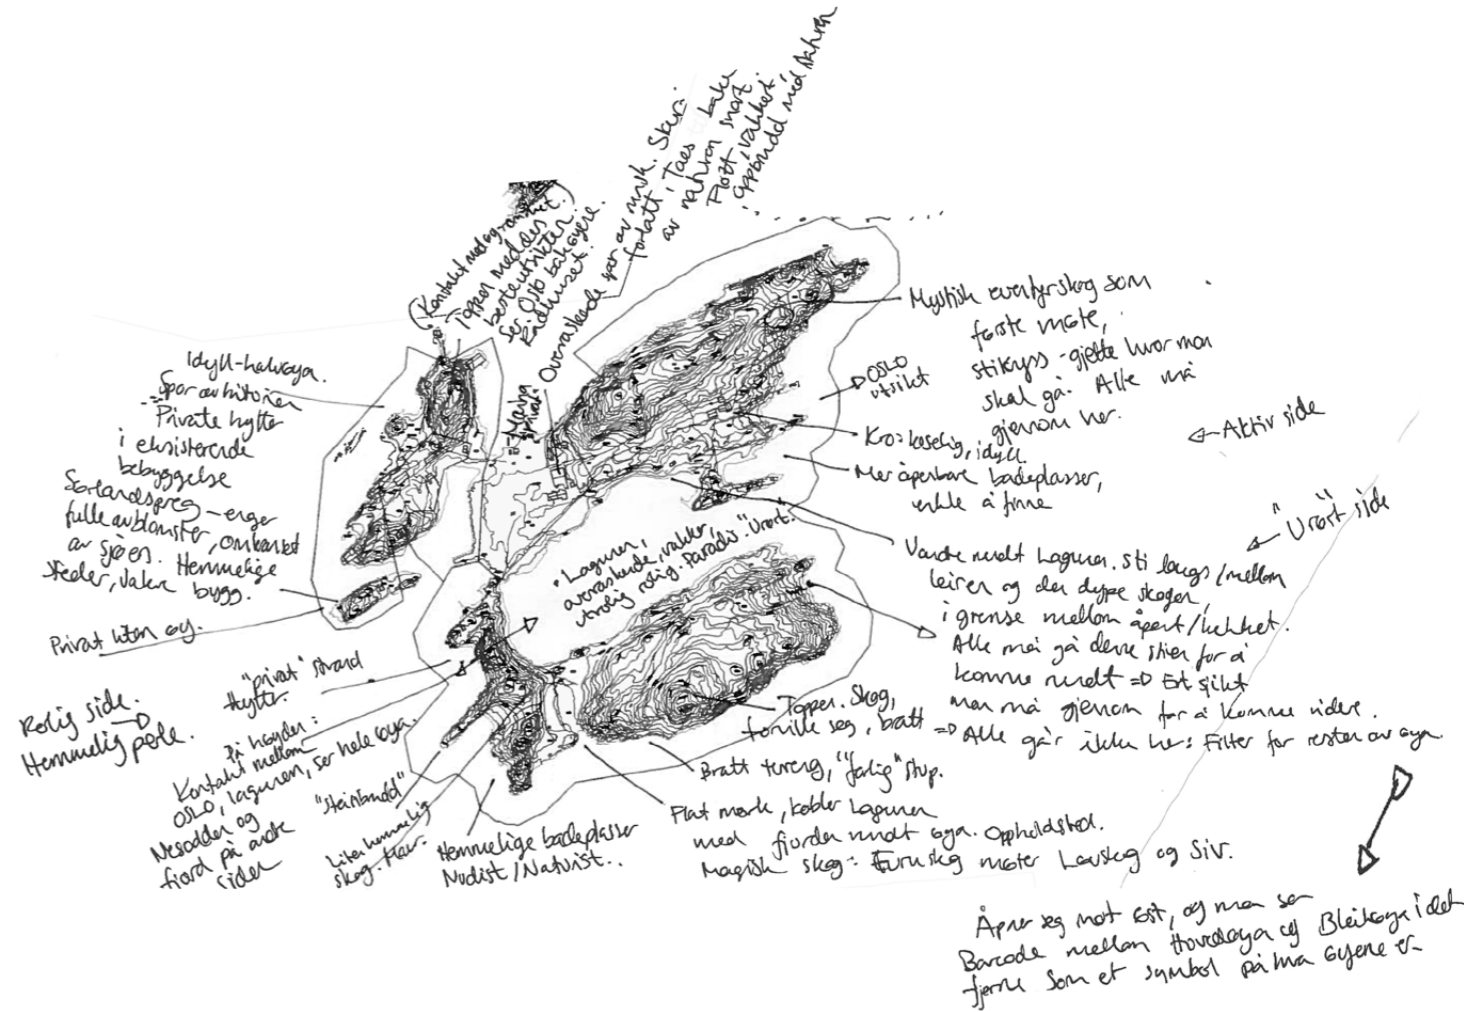 (Kontakt med
Toppen med den
beste utsikten.
Ser Oslo bak øyene.
Rådhuset.
Overraskende spor av munk. Skur:
forlatt, Taes tilbake
av naturen snart.
Flott, vakkert,
med naturen
Marka
privat.
Idyll-halvøya.
Spor av historien
Private hytter
i eksisterende
bebyggelse
Sørlandspreg - enger
fulle av blomster, omkranset
av sjøen. Hemmelige
steder, vakre bygg.
Privat liten øy.
"privat" strand
Hytter.
Rolig side.
Hemmelig perle.
På høyden:
Kontakt mellom
OSLO, lagunen, ser hele øya.
Nesodden og
fjord på andre
siden
"steinbrudd"
Liten hemmelig
skog.
Hemmelige badeplasser
Nudist/Naturist..
• Lagunen,
overraskende, vakker,
utrolig rolig. Paradis. "Urørt."
Mystisk eventyrskog som
første møte,
stikryss - gjette hvor man
skal gå. Alle må
gjennom her.
OSLO
utsikt
Kro: koselig, idyll
Mer åpenbare badeplasser,
enkle å finne
Aktiv side
"Urørt" side
Vandre rundt Lagunen. Sti langs/mellom
leiren og den dype skogen,
i grense mellom åpent/lukket.
Alle må gå denne stien for å
komme rundt => Ert sikt
man må gjennom for å komme videre.
Toppen. Skog,
forville seg, bratt => Alle går ikke her: Filter for resten av øya.
Bratt terreng, "farlig" stup.
Flat mark, kobler Lagunen
med fjorden rundt øya. Oppholdsted.
Magisk skog: Furuskog møter Løvskog og Siv.
Åpner seg mot øst, og man ser
Barcode mellom Hovedøya og Bleikøya i det
fjerne som et symbol på hva øyene er